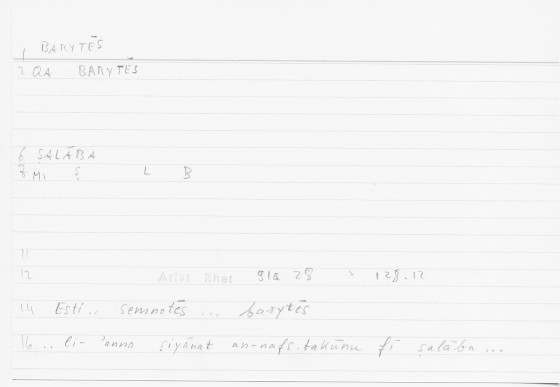 1 BARYTĒS
2 QA BARYTĒS
6 ṢALĀBA
8 MI Ṣ L B
11
12 Arist Rhet 91a 28 = 128.12
14 Esti .. semnotēs ... barytēs
16 .. li-'anna ṣiyānat an-nafs takūnu fī ṣalāba ...